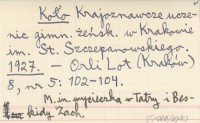 Koło Krajoznawcze ucze-
nic gimn. żeńsk. w Krakowie
im. St. Szczepanowskiego.
1927. — Orli Lot (Kraków)
8, nr 5: 102-104.
M. in. wycieczka - Tatry i Bes-
kidy Zach.